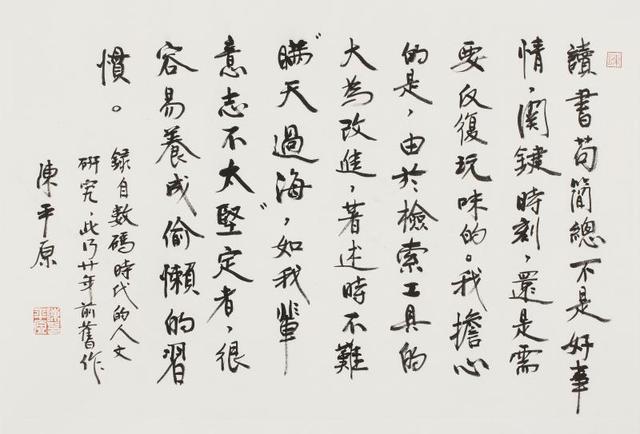 讀書苟簡總不是好事
情，関鍵時刻，還是需
要反復玩味的。我擔心
的是，由於檢索工具的
大為改進，著述時不難
瞞天過海"，如我輩
意志不太堅"定者，很
容易養成偷懶的習
慣。
錄自數碼時代的人文
研究，此乃廿年前舊作
陳平原